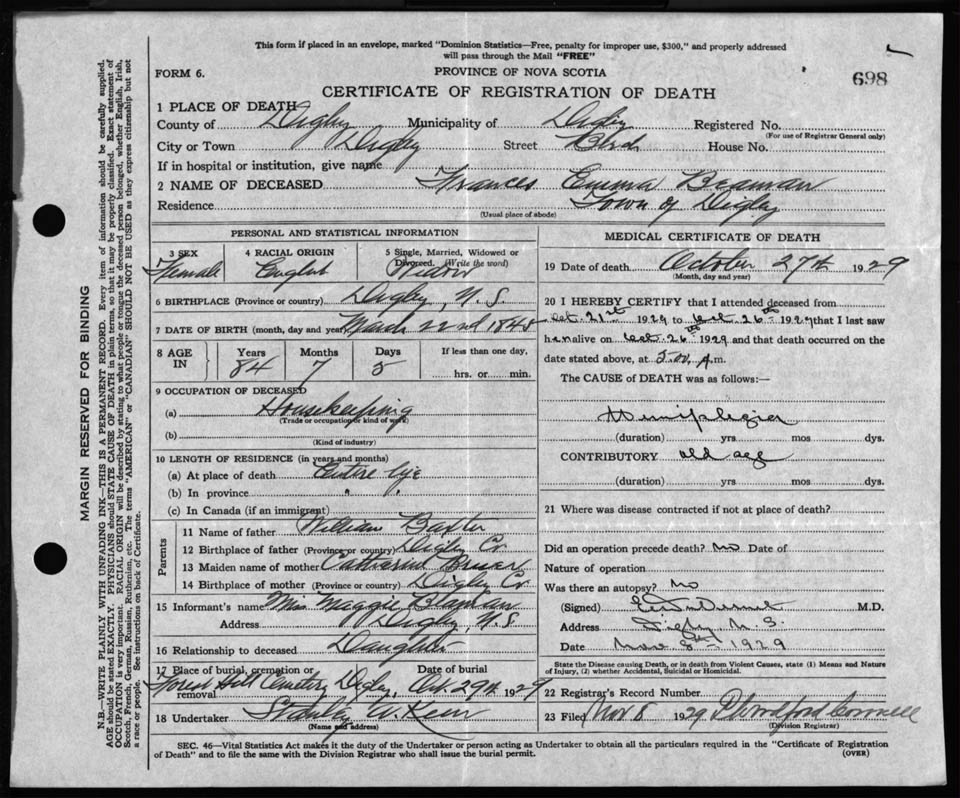 This form if placed in an envelope, marked "Dominion Statistics—Free, penalty for improper use, $300," and properly addressed
will pass through the Mail "FREE"
FORM 6.
PROVINCE OF NOVA SCOTIA
698
CERTIFICATE OF REGISTRATION OF DEATH
1 PLACE OF DEATH
County of Digby Municipality of Digby Registered No.
(For use of Registrar General only)
City or Town Digby Street House No.
If in hospital or institution, give name
2 NAME OF DECEASED Frances Emma Beaman
Residence Town of Digby
(Usual place of abode)
PERSONAL AND STATISTICAL INFORMATION
3 SEX Female
4 RACIAL ORIGIN English
5 Single, Married, Widowed or Divorced. (Write the word) Widow
6 BIRTHPLACE (Province or country) Digby, N.S.
7 DATE OF BIRTH (month, day and year) March 22nd 1845
8 AGE IN Years 84 Months 7 Days 5 If less than one day, hrs. or min.
9 OCCUPATION OF DECEASED
(a) Housekeeping
(Trade or occupation or kind of work)
(b)
(Kind of industry)
10 LENGTH OF RESIDENCE (in years and months)
(a) At place of death Entire life
(b) In province " "
(c) In Canada (if an immigrant)
Parents
11 Name of father William Baxter
12 Birthplace of father (Province or country) Digby Co
13 Maiden name of mother Catherine
14 Birthplace of mother (Province or country) Digby Co
15 Informant's name Miss Maggie Beaman
Address Digby, N.S.
16 Relationship to deceased Daughter
17 Place of burial, cremation or removal Forest Hill Cemetery Digby, Date of burial Oct. 29th 1929
18 Undertaker Stanley W.
(Name and address)
MEDICAL CERTIFICATE OF DEATH
19 Date of death October 27th 1929
(Month, day and year)
20 I HEREBY CERTIFY that I attended deceased from
Oct. 21st 1929 to Oct. 26th 1929 that I last saw
her alive on Oct. 26th 1929 and that death occurred on the
date stated above, at m.
The CAUSE of DEATH was as follows:—
Hemiplegia
(duration) yrs mos dys.
CONTRIBUTORY old age
(duration) yrs mos dys.
21 Where was disease contracted if not at place of death?
Did an operation precede death? no Date of
Nature of operation
Was there an autopsy? no
(Signed) M.D.
Address Digby N.S.
Date Nov 8th 1929
State the Disease causing Death, or in death from Violent Causes, state (1) Means and Nature
of Injury, (2) whether Accidental, Suicidal or Homicidal.
22 Registrar's Record Number
23 Filed Nov 8 1929
(Division Registrar)
SEC. 46—Vital Statistics Act makes it the duty of the Undertaker or person acting as Undertaker to obtain all the particulars required in the "Certificate of Registration
of Death" and to file the same with the Division Registrar who shall issue the burial permit.
(OVER)
MARGIN RESERVED FOR BINDING
N.B.—WRITE PLAINLY WITH UNFADING INK—THIS IS A PERMANENT RECORD. Every item of information should be carefully supplied.
AGE should be stated EXACTLY. PHYSICIANS should STATE CAUSE OF DEATH in plain terms, so that it may be properly classified. Exact statement of
OCCUPATION is very important. RACIAL ORIGIN will be described by stating to what people or tongue the deceased person belonged, whether English, Irish,
Scotch, French, German, Russian, Ruthenian, etc. The terms "AMERICAN" or "CANADIAN" SHOULD NOT BE USED as they express citizenship but not
a race or people. See instructions on back of Certificate.